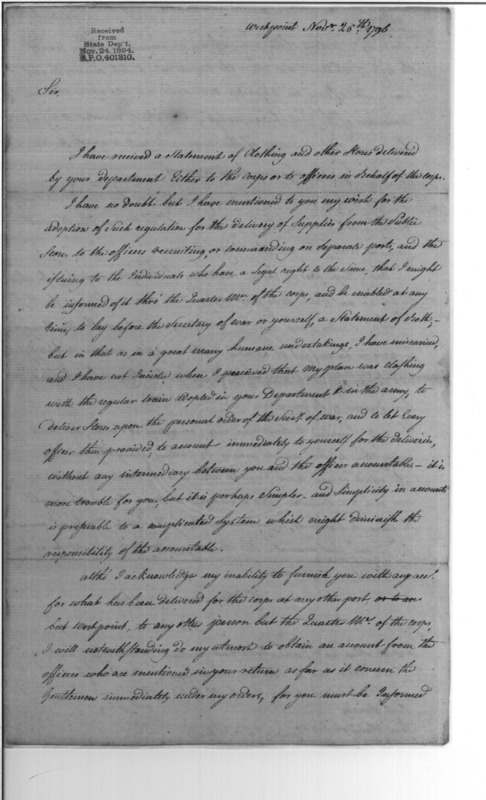 Received
from
State Dep't,
Nov. 24, 1894.
R.P.O. 401310.
Westpoint Novr. 25th 1796
Sir,
I have received a Statement of Clothing and other Stores delivered
by your department Either to the Corps or to officers in Behalf of the corps.
I have no doubt but I have mentioned to you my wish for the
adoption of Such regulation for the delivery of Supplies from the Public
Store, to the officers recruiting, or Commanding on Separate posts, and the
issuing to the Individuals who have a legal right to the Same, that I might
be informed of it thro' the Quarter Mr. of the corps, and be enabled at any
time, to lay before the Secretary of war or yourself, a Statement of Both;—
but in that as in a great many humane undertakings, I have miscarried,
and I have not Insisted when I perceived that My plan was clashing
with the regular adopted in your Department & in the army, to
deliver Stores upon the personal order of the Secy. of war, and to let Every
officer thus provided, to account immediately to yourself for the deliveries,
without any intermediary between you and the officer accountable — it is
more trouble for you, but it is perhaps Simpler. and Simplicity in accounts
is preferable to a complicated System which might diminish the
responsibility of the accountable.
altho' I acknowledge my inability to furnish you with any acc.
for what has been delivered for the corps at any other post
but Westpoint, to any other person but the Quarter Mr. of the corps,
I will notwithstanding do my utmost to obtain an account from the
officers who are mentioned in your return as far as it concern the
Gentlemen immediately under my orders, for you must be Informed